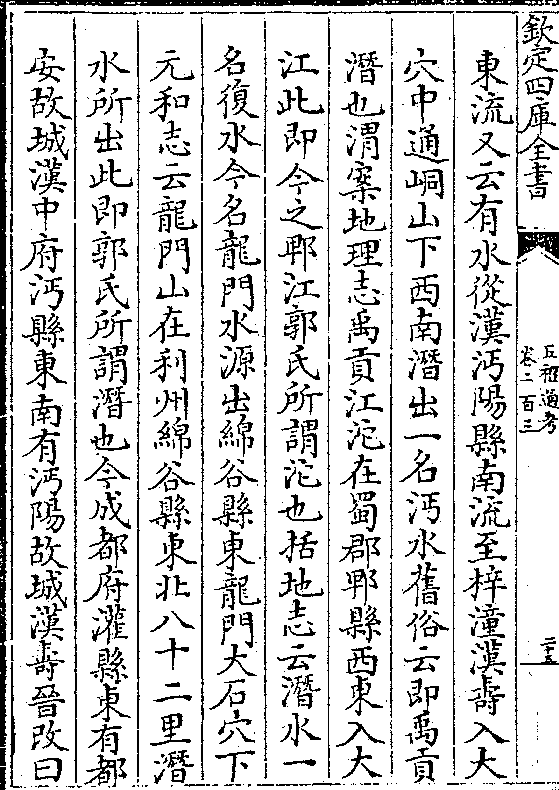 欽定四庫全書
五禮通考
卷二百三
二十五
東流又云有水從漢沔陽縣南流至梓潼漢壽入大
穴中通峒山下西南潛出一名沔水舊俗云即禹貢
潛也渭案地理志禹貢江沱在蜀郡郫縣西東入大
江此即今之郫江郭氏所謂沱也括地志云潛水一
名復水今名龍門水源出綿谷縣東龍門大石穴下
元和志云龍門山在利州綿谷縣東北八十二里潛
水所出此即郭氏所謂潛也今成都府灌縣東有都
安故城漢中府沔縣東南有沔陽故城漢壽晉改曰